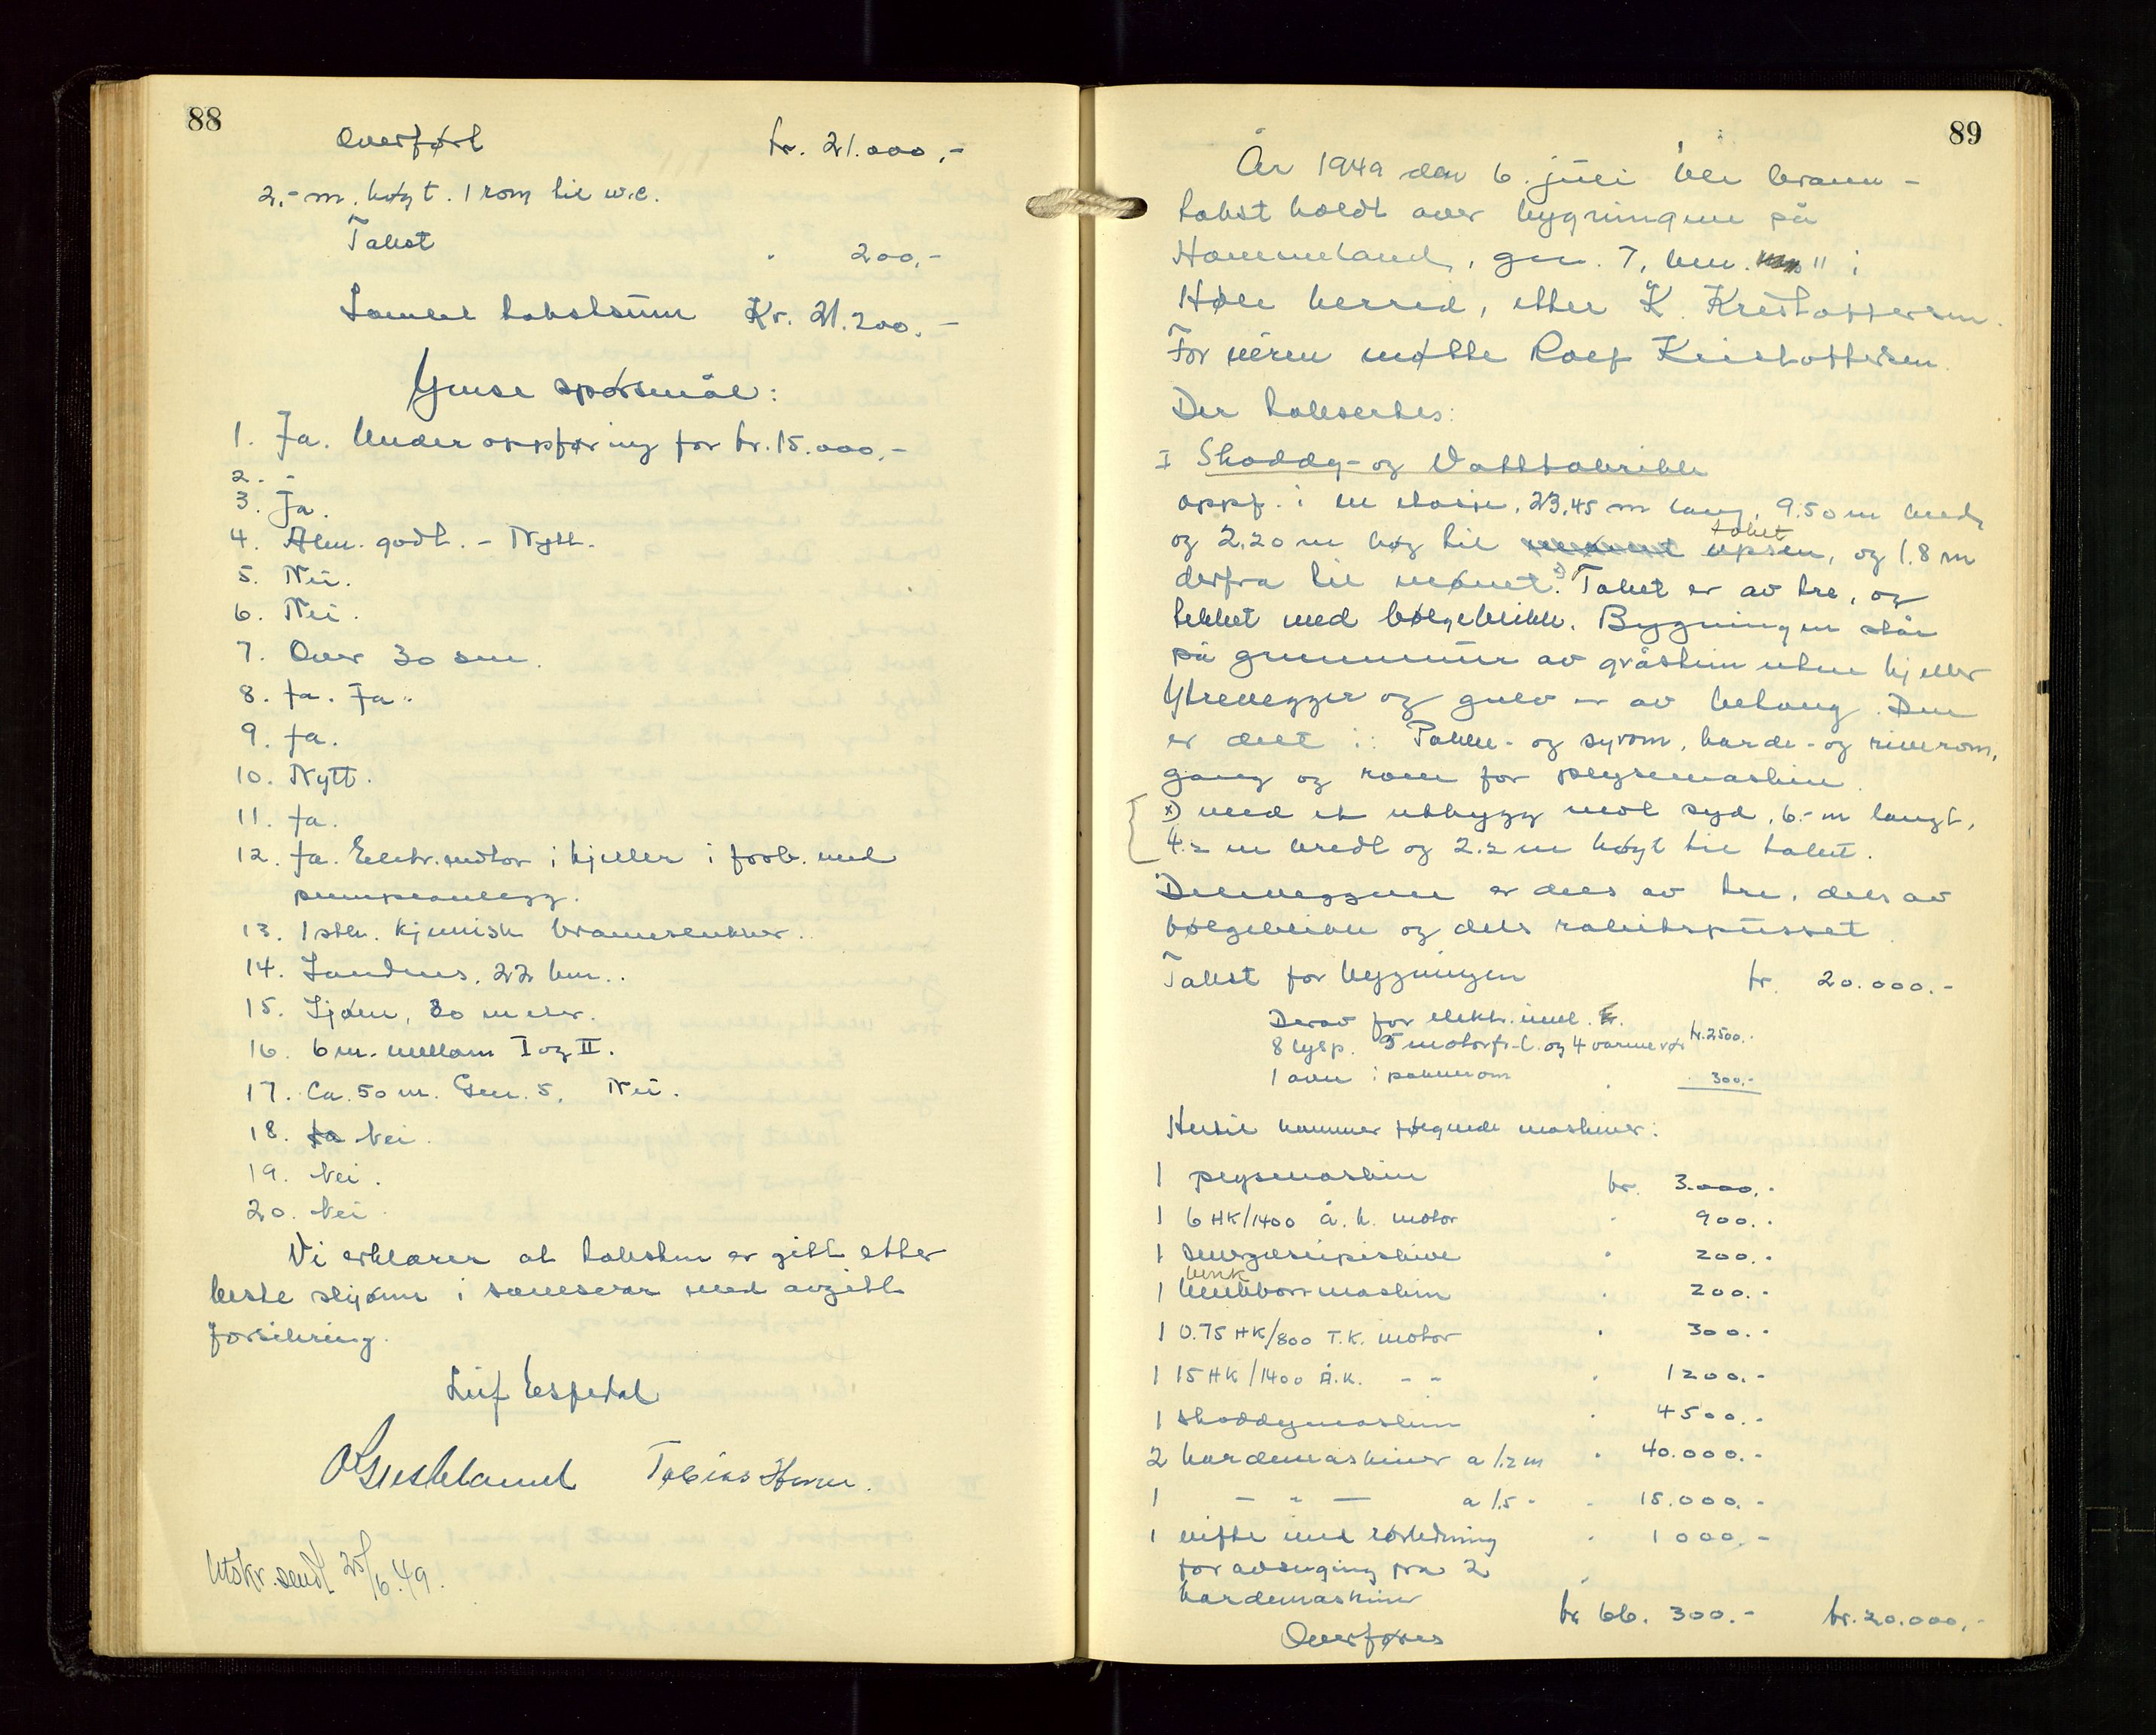 88
Overført kr. 21.000,-
2,- m. høgt. 1 rom til w.c.
Takst " 200,-
Samlet takstsum Kr. 21.200.-
Ymse spørsmål:
1. Ja. Under oppføring for kr. 15.000,-
2. -
3. Ja.
4. Alm. godt. - Nytt.
5. Nei.
6. Nei.
7. Over 30 cm.
8. Ja. Ja.
9. Ja.
10. Nytt.
11. Ja.
12. Ja. Elektr. motor i kjeller i forb. med
pumpeanlegg.
13. 1 stk. kjemisk brannslukker.
14. Sandnes, 22 km.
15. Sjøen, 30 meter.
16. 6 m. mellom I og II.
17. Ca. 50 m. Gnr. 5. Nei.
18. Ja Nei.
19. Nei.
20. Nei.
Vi erklærer at taksten er gitt etter
beste skjønn i samsvar med avgitt
forsikring.
Leif Espedal
Tobias Hommel
Utskr. sendt 25/6.49.
89
År 1949 den 6. juli ble brann-
takst holdt over bygningene på
Hommeland, gnr. 7, bnr. 11 i
Høle herred, etter K. Kristoffersen.
For eieren møtte Rolf Kristoffersen.
Der takseertes:
I Shoddy- og Vattfabrikk
oppf. i en etasje, 23,45 m lang, 9.50 m bred,
taket
og 2,20 m høg til mønet upsen, og 1.8 m
derfra til mønet. x) Taket er av tre, og
tekket med bølgeblikk. Bygningen står
på grunnmur av gråstein uten kjeller
Yttervegger og gulv er av betong. Den
er delt i: Pakke- og syrom, karde- og riverom,
gang og rom for pløysemaskin.
x) med et utbygg mot syd, 6.- m langt,
4.2 m bredt og 2.2 m høgt til taket.
Delveggene er dels av tre, dels av
bølgeblikk og dels rabitspusset.
Takst for bygningen kr. 20.000.-
Derav for elektr. innl. kr.
8 lysp. 5 motorfr.l. og 4 varmerør kr. 2500.-
1 ovn i pakkerom " 300.-
Hertil kommer følgende maskiner:
1 pløysemaskin kr. 3.000.-
1 6 HK/1400 Å.K. motor " 900.-
1 smergelslipeskive " 200.-
benk
1 benkbormaskin " 200.-
1 0.75 HK/800 T.K. motor " 300.-
1 15 HK/1400 Å.K. - " - " 1200.-
1 shoddymaskin " 4500.-
2 kardemaskiner a 1.2 m " 40.000.-
1 - " - a 1.5 - " 15.000.-
1 vifte med rørledning " 1000.-
for avsuging fra 2
kardemaskiner
Overføres kr. 66.300.- kr. 20.000,-